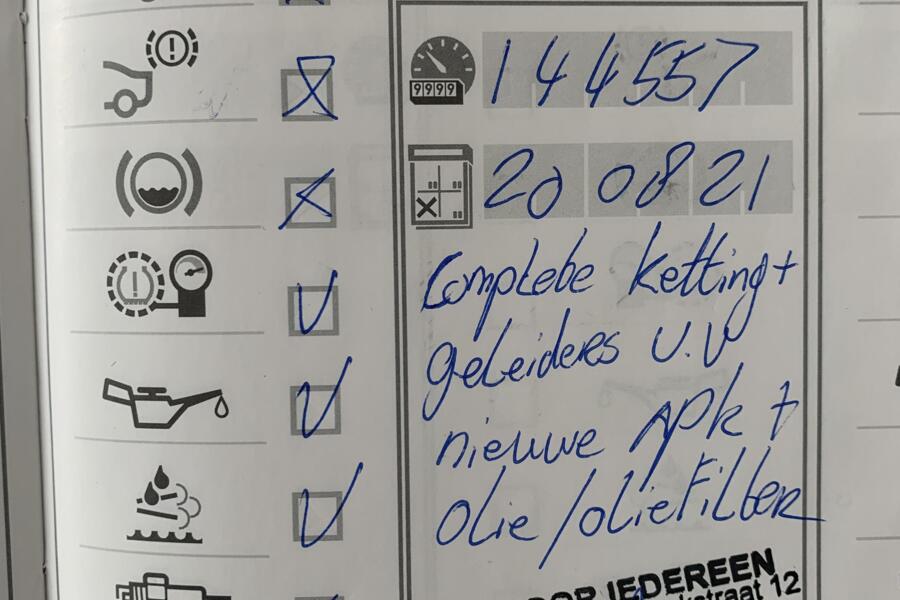 9999
144557
20 08 21
Complete ketting +
geleiders V.V
nieuwe APK +
olie/oliefilter
OOR IEDEREEN
straat 12